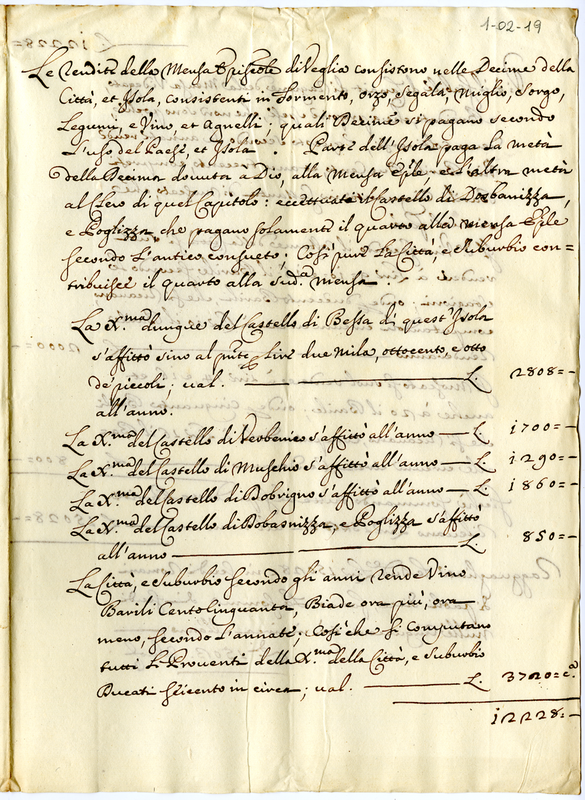 1-02-19
Le rendite della Mensa Episcole di Veglia consistono nelle Decime della
Città, et Isola, consistenti in formento, orzo, segala, miglio, sorgo,
Legumi, e Vino, et Agnelli; quali Decime si pagano secondo
L'uso del Paese, et Isola. Parte dell'Isola paga la metà
della Decima dovuta a Dio, alla Mensa Eple e l'altra metà
al Clero di quel Capitolo: eccettuati il Castello di Dobasnizza,
e Poglizza che pagano solamente il quarto alla mensa Eple
secondo l'antico consueto; Così pure la Città, e Suburbio con=
tribuisce il quarto alla sudª mensa.
La Xma dunque del Castello di Bessa di quest'Isola
s'affittò sino al pnte Lire due mila, ottocento, e otto
de piccoli; val. — L. 2808=-
all'anno.
La Xma del Castello di Verbenico s'affittò all'anno — L 1700=-
La Xma del Castello di Muschio s'affittò all'anno — L. 1290=-
La Xma del Castello di Dobrigno s'affittò all'anno — L. 1860=-
La Xma del Castello di Dobasnizza, e Poglizza s'affittò
all'anno — L. 850=-
La Città, e Suburbio secondo gli anni rende Vino
Barili Cento cinquanta, Biade ora più, ora
meno, secondo l'annate; Così che si computano
tutti li Proventi della Xma della Città, e Suburbio
Ducati seicento in circa; val. — L. 3720=cª
12228=-